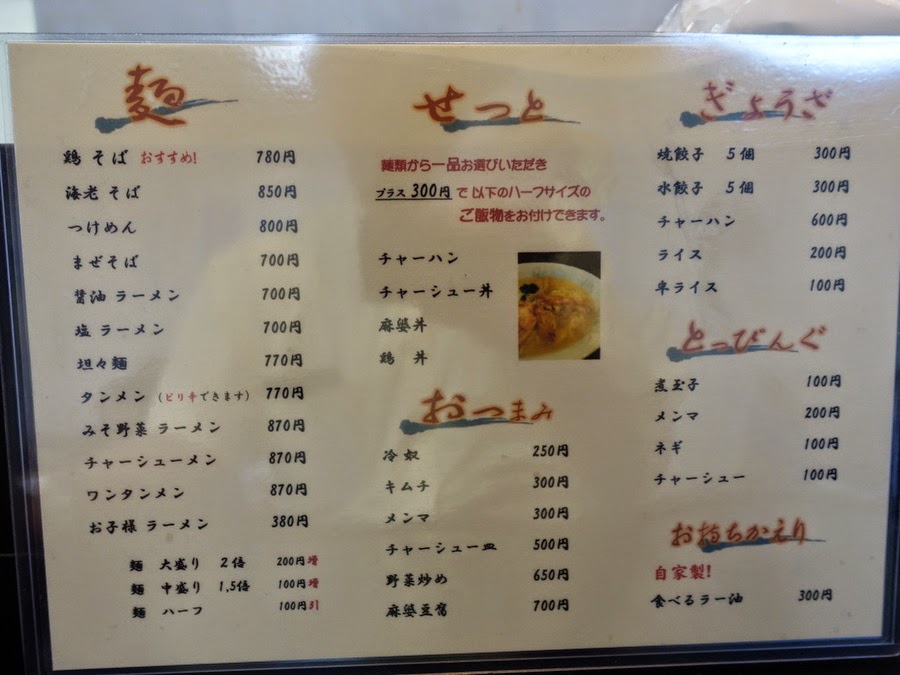 麺
鶏 そば おすすめ! 780円
海老 そば 850円
つけめん 800円
まぜそば 700円
醤油 ラーメン 700円
塩 ラーメン 700円
坦々麺 770円
タンメン (ピリ辛できます) 770円
みそ野菜 ラーメン 870円
チャーシューメン 870円
ワンタンメン 870円
お子様 ラーメン 380円
麺 大盛り 2倍 200円増
麺 中盛り 1,5倍 100円増
麺 ハーフ 100円引
せっと
麺類から一品お選びいただき
プラス 300円 で 以下のハーフサイズの
ご飯物をお付けできます。
チャーハン
チャーシュー丼
麻婆丼
鶏 丼
おつまみ
冷奴 250円
キムチ 300円
メンマ 300円
チャーシュー皿 500円
野菜炒め 650円
麻婆豆腐 700円
ぎょうざ
焼餃子 5個 300円
水餃子 5個 300円
チャーハン 600円
ライス 200円
半ライス 100円
とっぴんぐ
煮玉子 100円
メンマ 200円
ネギ 100円
チャーシュー 100円
お持ちかえり
自家製!
食べるラー油 300円